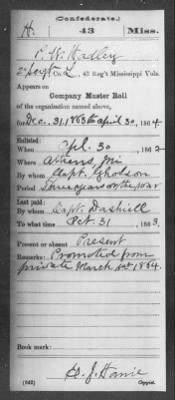 (Confederate.)
H. 43 Miss.
P. W. Hadley
2d Sergt, Co. L, 43 Reg't Mississippi Vols.
Appears on
Company Muster Roll
of the organization named above,
for Dec. 31, 1863 to April 30, 1864.
Enlisted:
When Apl. 30, 1862
Where Athens, Mi
By whom Capt. Gholson
Period Three years or the war
Last paid:
By whom Capt. Dashiell
To what time Oct. 31, 1863.
Present or absent Present
Remarks: Promoted from
private March 1st 1864.
Book mark:
(642) Copyist.